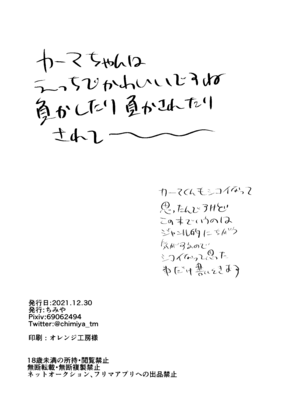 カーマちゃんは
えっちでかわいいですね
負かしたり負かされたり
されて〜
カーマくんもシコイなって
思ったんですけど
この本でいうのは
ジャンル的にちがう
気がするので
シコイなって思った
わだけ書いときます
発行日:2021.12.30
発行:ちみや
Pixiv:69062494
Twitter:@chimiya_tm
印刷：オレンジ工房様
18歳未満の所持・閲覧禁止
無断転載・無断複製禁止
ネットオークション、フリマアプリへの出品禁止